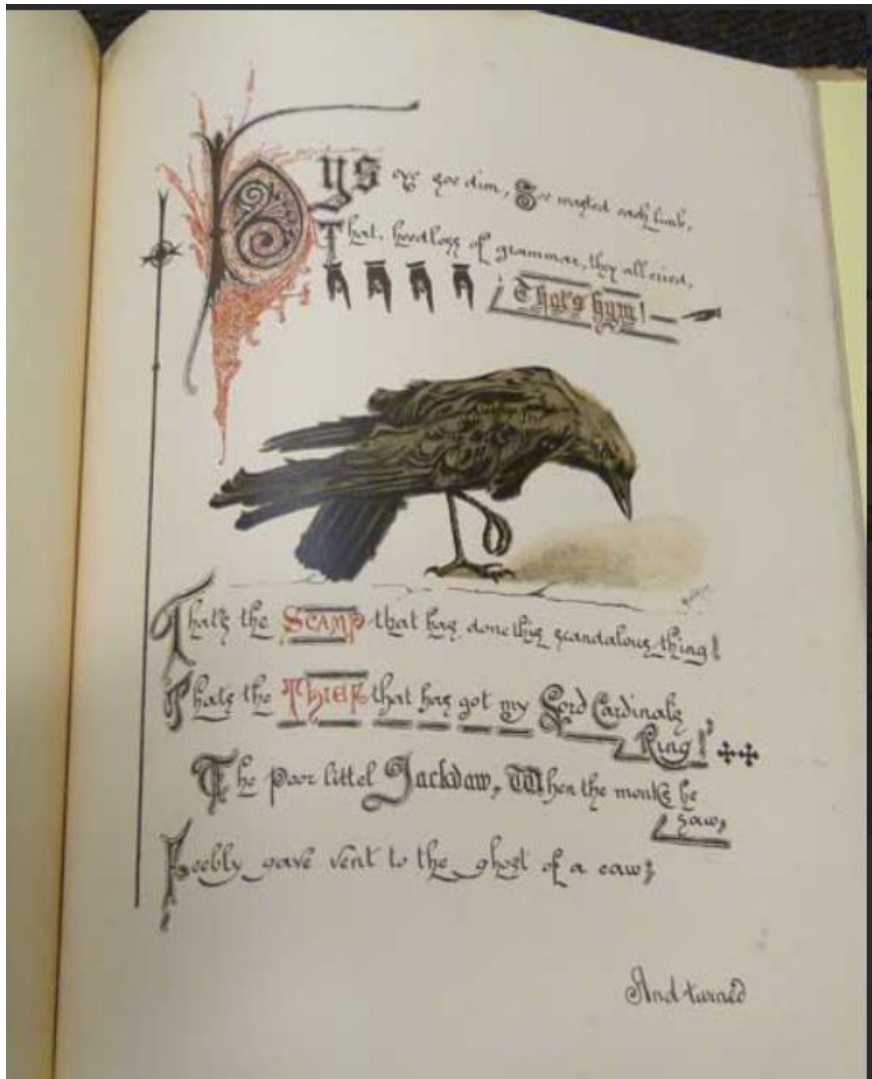 Hys eye soe dim, Soe wasted each limb,
That, heedless of grammar, they all cried,
That's hym!
That's the SCAMP that has done this scandalous thing!
Thats the THIEF that has got my Lord Cardinals
Ring!'
The poor littel Jackdaw, When the monks he
saw,
Feebly gave vent to the ghost of a caw;
And turned